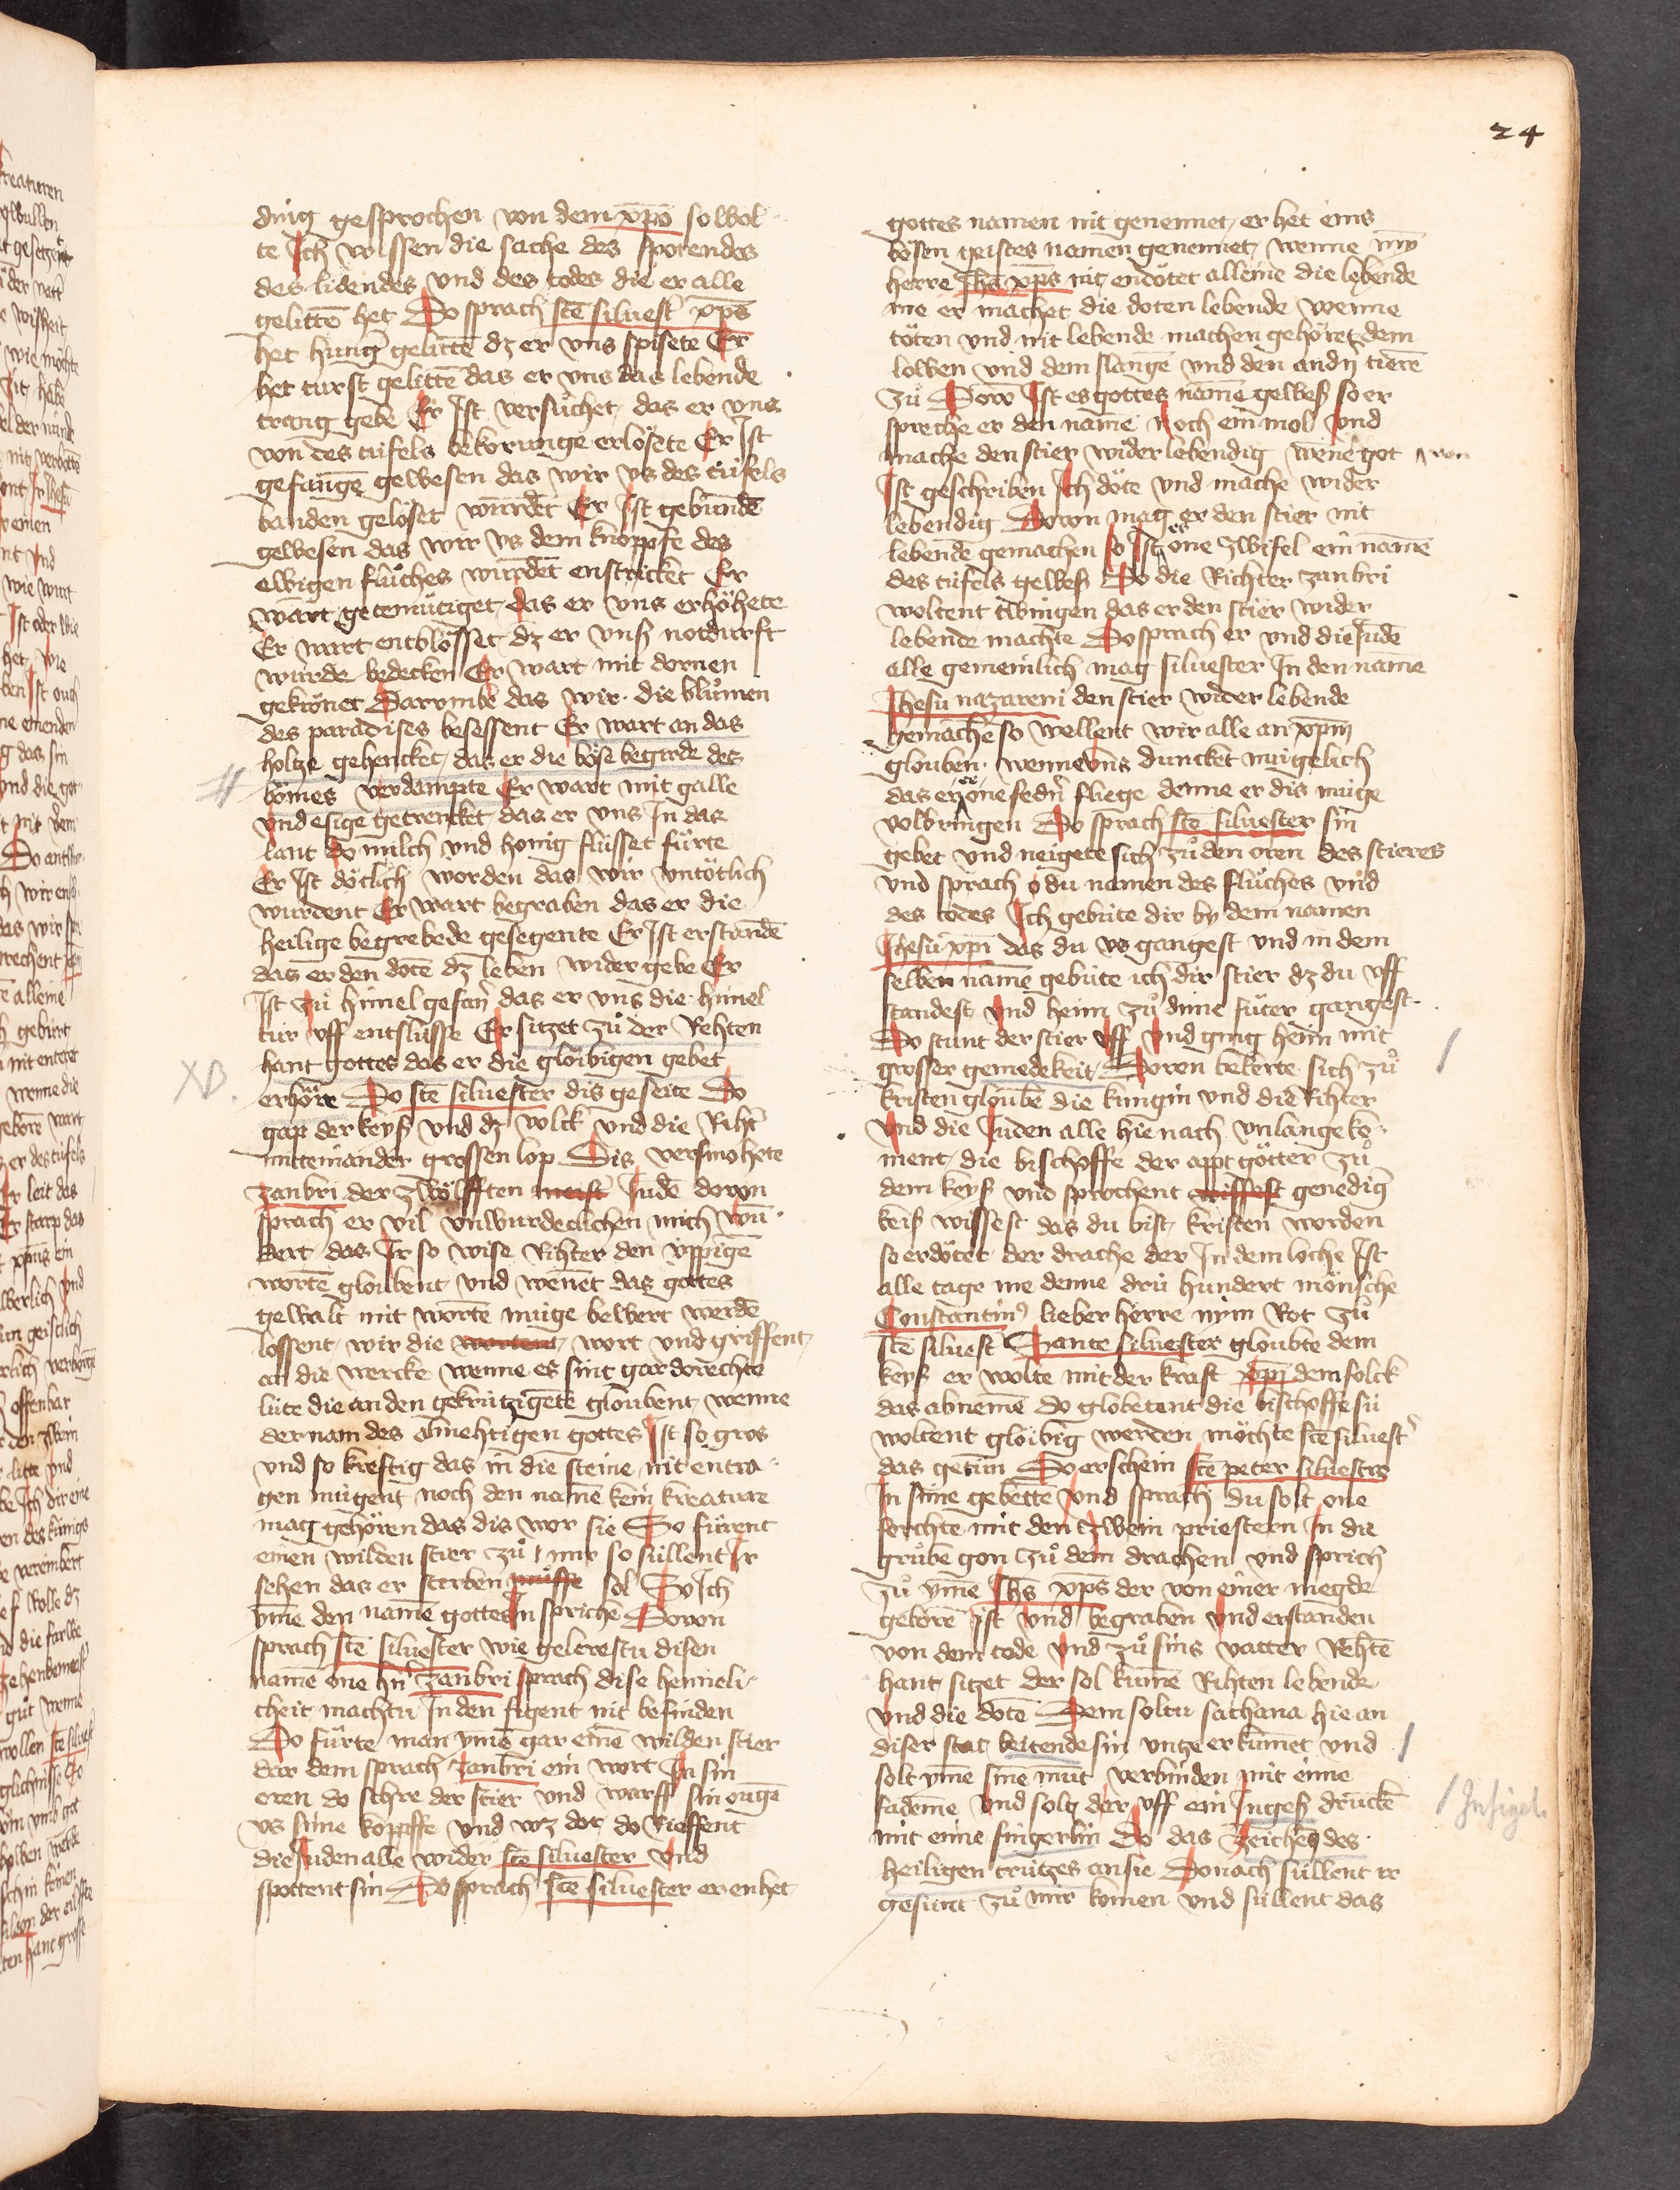 24
ding gesprochen von dem xp̄o so wol
te Ich wissen die sache des spotendes
des lidendes vnd des todes die er alle
gelittē het Do sprach scē siluest͛ xp̄s
het hung͛ gelittē dz er vns spisete Er
het turst gelittē das er vns das lebende
trang gebe Er Ist versůchet das er vns
von des tüfels bekorunge erlösete Er Ist
gefangē gewesen das wir vs des tüfels
banden gelöset wurdēt Er Ist gebundē
gewesen das wir vs dem knoppfe des
ewigen flůches wurdēt enstricket Er
wart gedemütiget das er vns erhöhete
Er wart entblösset dz er vnß notdurft
würde bedecken Er wart mit dornen
gekrönet Darvmbe das wir die blůmen
des paradises besessent Er wart an das
holtze gehencket das er die böse begirde des
bömes verdampte Er wart mit galle
vnd esige getrencket das er vns In das
lant do milch vnd honig flüsset fürte
Er Ist dötlich worden das wir vntötlich
wurdent Er wart begraben das er die
heilige begrebede gesegente Er Ist erstandē
das er den dotē dz leben wider gebe Er
Ist zů himel gefarn das er vns die himel
tür vff entslüsse Er sitzet zů der Rehten
hant gottes das er die glöibigen gebet
erhöre Do scē siluester dis geseite Do
gap der keyß vnd dz volck vnd die Riht͛
mitteinander grossen lop Dis versmohete
zanbri der zwölfften meist͛ Judē dovon
sprach er vil vnwurdeclichen mich wū
dert das Ir so wise Rihter den vppigē
wortē gloubent vnd wenēt das gottes
gewalt mit wortē müge bewert werdē
lossent wir die wortent wort vnd griffent
an die wercke wenne es sint gar dorechte
lüte die an den gekrützigetē gloubent wenne
der nam des almehtigen gottes Ist so gros
vnd so kreftig das in die steine nit entra
gen mügent noch den namē kein kreature
mag gehören das dis wor sie So fürent
einen wilden stier zů mir so süllent Ir
sehen das er sterben müsse sol So Ich
yme den namē gottes In spriche Dovon
sprach scē siluester wie gelerestu disen
namē one hn͛ zanbri sprach dise heimeli
cheit machtu In den figent nit befinden
Do fürte man ymē gar einē wilden stier
dar dem sprach zanbri ein wort In sin
oren do schre der stier vnd warff sin ougē
vs sime koppffe vnd wz dot do Rieffent
die Juden alle wider scē siluester vnd
spottent sin Do sprach scē siluester er enhet
gottes namen nit genennet er het eins
bösen geistes namen genennet wenne my
herre Jhs xp̄s nit endötet alleine die lebende
me er machet die doten lebende wenne
töten vnd nit lebende machen gehöret dem
lowen vnd dem slangē vnd den andn tierē
zů Dovō Ist es gottes namē gewesß so er
spreche er den namē noch ein mol vnd
mache den stier wider lebendig wēne got von
Ist geschriben Ich döte vnd mache wider
lebendig Dovon mag er den stier nit
lebende gemachen so Ist es one zwifel ein namē
des tüfels gewesß Do die Richter zanbri
woltent twingen das er den stier wider
lebende machte Do sprach er vnd die Judē
alle gemeinlich mag siluester In den namē
Jhesu nazareni den stier wider lebende
gemachē so wellent wir alle an xp̄m
glouben wenne vns duncket mügelich
das er er one fedn͛ fliege denne er dis müge
volbringen Do sprach scē siluester sin
gebet vnd neigete sich zů den oren des stieres
vnd sprach o du namen des flůches vnd
des todes Ich gebüte dir by dem namen
Jhesu xp̄i das du vs gangest vnd in dem
selben namē gebüte ich dir stier dz du vff
standest vnd heim zů dime fůter gangest
Do stunt der stier vff vnd ging heim mit
grosser gemedekeit Dovon bekerte sich zů
kristen gloubē die künigin vnd die Rihter
vnd die Juden alle hie nach vnlange ko
ment die bischoffe der appt götter zů
dem keyß vnd sprochent wissest genedig͛
keiß wissest das du bist kristen worden
so erdötet der drache der In dem loche Ist
alle tage me denne drü hundert mönsche
Constantin⁹ lieber herre nym Rot zů
scē siluest͛ Sante siluester gloubte dem
keyß er wolte mit der kraft xp̄i dem folck
das abnemē do globetent die bischoffe sü
woltent glöibig werden möchte scē siluest͛
das getůn Do erschein scē peter siluestro
In sime gebettē vnd sprach du solt one
forchte mit den zwein priestern In die
grůbe gon zů dem drachen vnd sprich
zů yme Jhs xp̄s der von einer megde
geborē ist vnd begraben vnd erstanden
von dem tode vnd zů sins vatter Rehtē
hant sitzet der sol kumē Rihten lebende
vnd die dotē Dem soltu sathana hie an
diser stat beitende sin vntze er kumet vnd
solt yme sinē mūt verbinden mit eime
fademe vnd solt der vff ein Ingeß druckē
Insigel
mit eime fingerlin do das zeichen des
heiligen crützes an sie Donach süllent ir
gesunt zů mir komen vnd süllent das